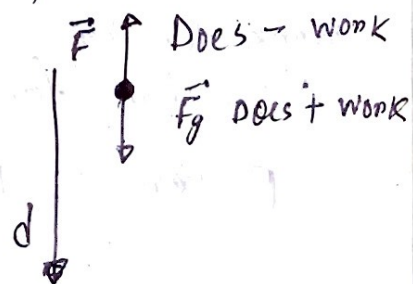 F⃗ Does - work
F⃗g Does + work
d